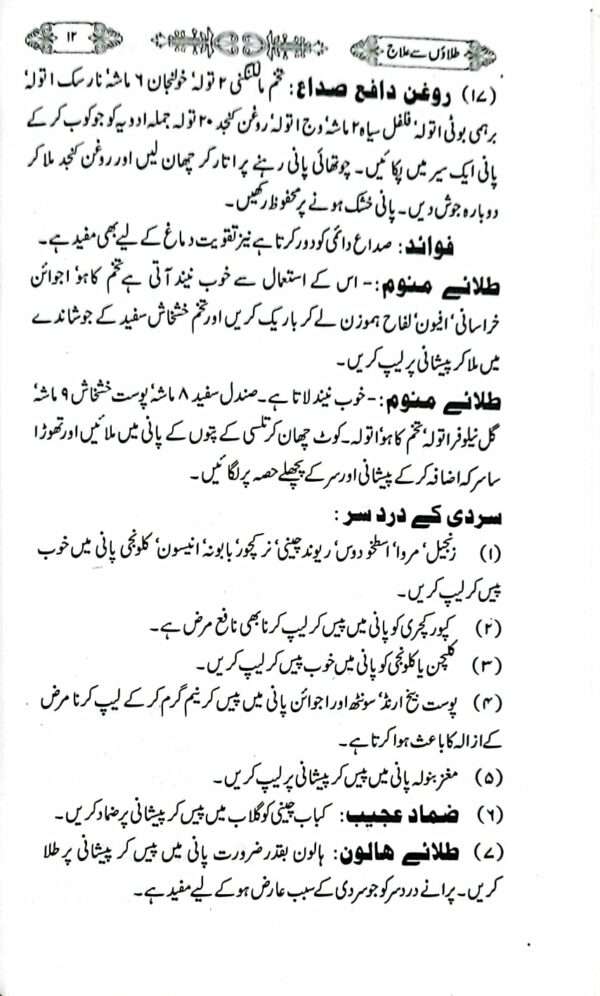 طلاؤں سے علاج ۱۲
(۱۷) روغن دافع صداع: تخم مالکنگنی ۲ تولہ' خولنجان ۶ ماشہ' نارسک ا تولہ'
برہمی بوٹی اتولہ' فلفل سیاہ ۲ ماشہ' وج اتولہ' روغن کنجد ۲۰ تولہ جملہ ادویہ کو جوکوب کر کے
پانی ایک سیر میں پکائیں۔ چوتھائی پانی رہنے پر اتار کر چھان لیں اور روغن کنجد ملا کر
دوبارہ جوش دیں۔ پانی خشک ہونے پر محفوظ رکھیں۔
فوائد: صداع دائمی کو دور کرتا ہے نیز تقویت دماغ کے لیے بھی مفید ہے۔
طلائے منوم:- اس کے استعمال سے خوب نیند آتی ہے تخم کاہو' اجوائن
خراسانی' افیون' لفاح ہموزن لے کر باریک کریں اور تخم خشخاش سفید کے جوشاندے
میں ملا کر پیشانی پر لیپ کریں۔
طلائے منوم:- خوب نیند لاتا ہے۔ صندل سفید ۸ ماشہ' پوست خشخاش ۹ ماشہ'
گل نیلوفر اتولہ' تخم کاہو' اتولہ۔ کوٹ چھان کر تلسی کے پتوں کے پانی میں ملائیں اور تھوڑا
سا سرکہ اضافہ کر کے پیشانی اور سر کے پچھلے حصہ پر لگائیں۔
سردی کے درد سر:
(۱) زنجبیل' مروا' اسطخودوس' ریوند چینی' نرکچور' بابونہ' انیسون' کلونجی پانی میں خوب
پیس کر لیپ کریں۔
(۲) کپور کچری کو پانی میں پیس کر لیپ کرنا بھی نافع مرض ہے۔
(۳) کلیجن یا کلونجی کو پانی میں خوب پیس کر لیپ کریں۔
(۴) پوست بیخ ارنڈ' سونٹھ اور اجوائن پانی میں پیس کر نیم گرم کر کے لیپ کرنا مرض
کے ازالہ کا باعث ہوا کرتا ہے۔
(۵) مغز بنولہ پانی میں پیس کر پیشانی پر لیپ کریں۔
(۶) ضماد عجیب: کباب چینی کو گلاب میں پیس کر پیشانی پر ضماد کریں۔
(۷) طلائے ہالون: ہالون بقدر ضرورت پانی میں پیس کر پیشانی پر طلا
کریں۔ پرانے درد سر کو جو سردی کے سبب عارض ہو کے لیے مفید ہے۔